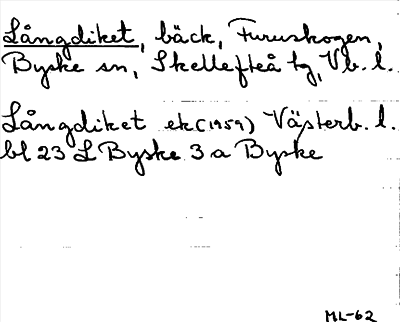 Långdiket, bäck, Furuskogen,
Byske sn, Skellefteå tg, Vb. l.
Långdiket ek (1959) Västerb. l.
bl 23 L Byske 3 a Byske
ML-62